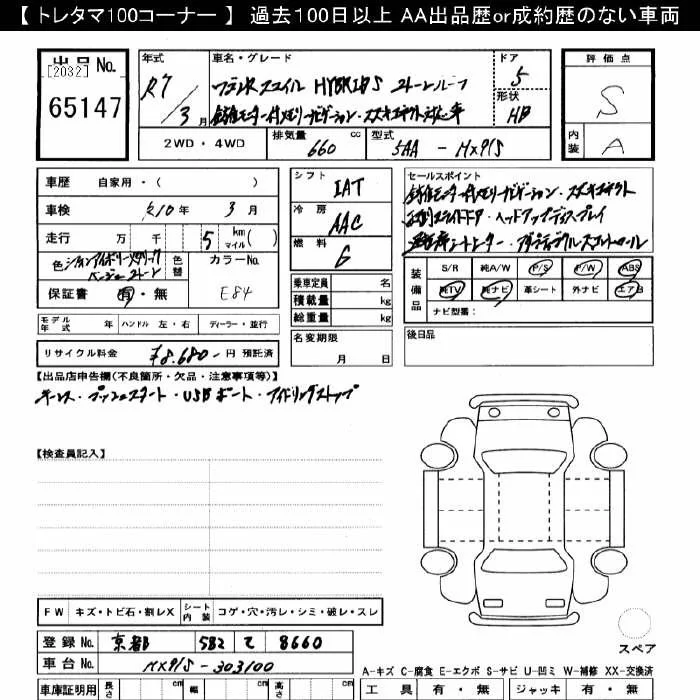 【 トレタマ100コーナー 】 過去100日以上 AA出品歴or成約歴のない車両
出品 No.
[2032]
65147
年式
R7
3月
車名・グレード
ワゴンRスマイル HYBRID S 2トーンルーフ
全方位モニター付メモリーナビゲーション・スズキコネクト対応車
ドア
5
形状
HB
評価点
S
内装
A
2WD ・ 4WD
排気量 660 cc
型式 5AA - MX91S
車歴 自家用・( )
車検 R10年 3月
走行 万 千 5 km マイル ( )
色
シフォンアイボリーメタリック
ベージュ2トーン
色替
カラーNo.
E84
保証書 有・無
シフト IAT
冷房 AAC
燃料 G
乗車定員 名
積載量 kg
総重量 kg
セールスポイント
全方位モニター付メモリーナビゲーション・スズキコネクト
両側スライドドア・ヘッドアップディスプレイ
運転席シートヒーター・アダプティブクルーズコントロール
装備品
S/R 純A/W P/S P/W ABS
純TV 純ナビ 革シート 外ナビ エアB
ナビ型番:
モデル年式 年 ハンドル 左・右 ディーラー・並行
名変期限
月 日
後日品
リサイクル料金 ¥8,680- 円 預託済
【出品店申告欄(不良箇所・欠品・注意事項等)】
キーレス・プッシュスタート・USBポート・アイドリングストップ
【検査員記入】
FW キズ・トビ石・割レX シート内装 コゲ・穴・汚レ・シミ・破レ・スレ
登録 No. 京都 582 て 8660
車台 No. MX91S-303100
車庫証明用 長さ cm 幅 cm 高さ cm
スペア
A-キズ C-腐食 E-エクボ S-サビ U-凹ミ W-補修 XX-交換済
工具 有・無 ジャッキ 有・無